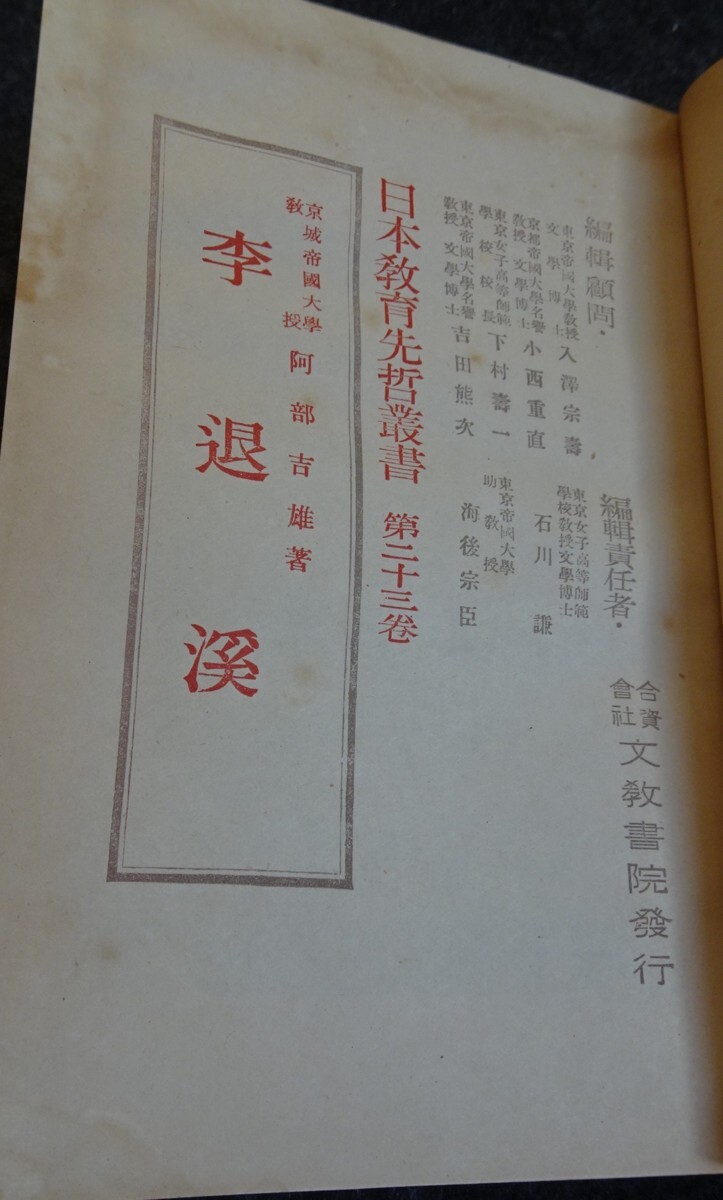 編輯顧問・
東京帝國大學教授
文學博士
入澤宗壽
京都帝國大學名譽
教授文學博士
小西重直
東京女子高等師範
學校校長
下村壽一
東京帝國大學名譽
教授文學博士
吉田熊次
編輯責任者・
東京女子高等師範
學校教授文學博士
石川謙
東京帝國大學
助教授
海後宗臣
合資
會社
文敎書院發行
日本敎育先哲叢書 第二十三卷
京城帝國大學
敎授
阿部吉雄著
李退溪